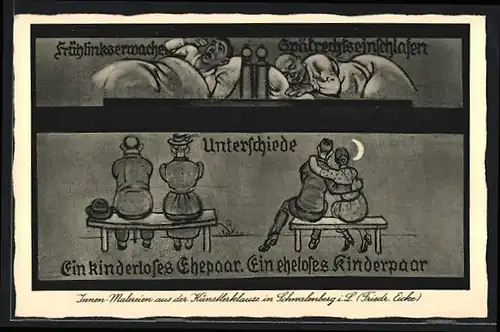 Frühlinkserwachen
Spätrechtseinschlafen
Unterschiede
Ein kinderloses Ehepaar. Ein eheloses Kinderpaar
Innen-Malereien aus der Künstlerklause in Schwalenberg i. L. (Friedr. Eicke)